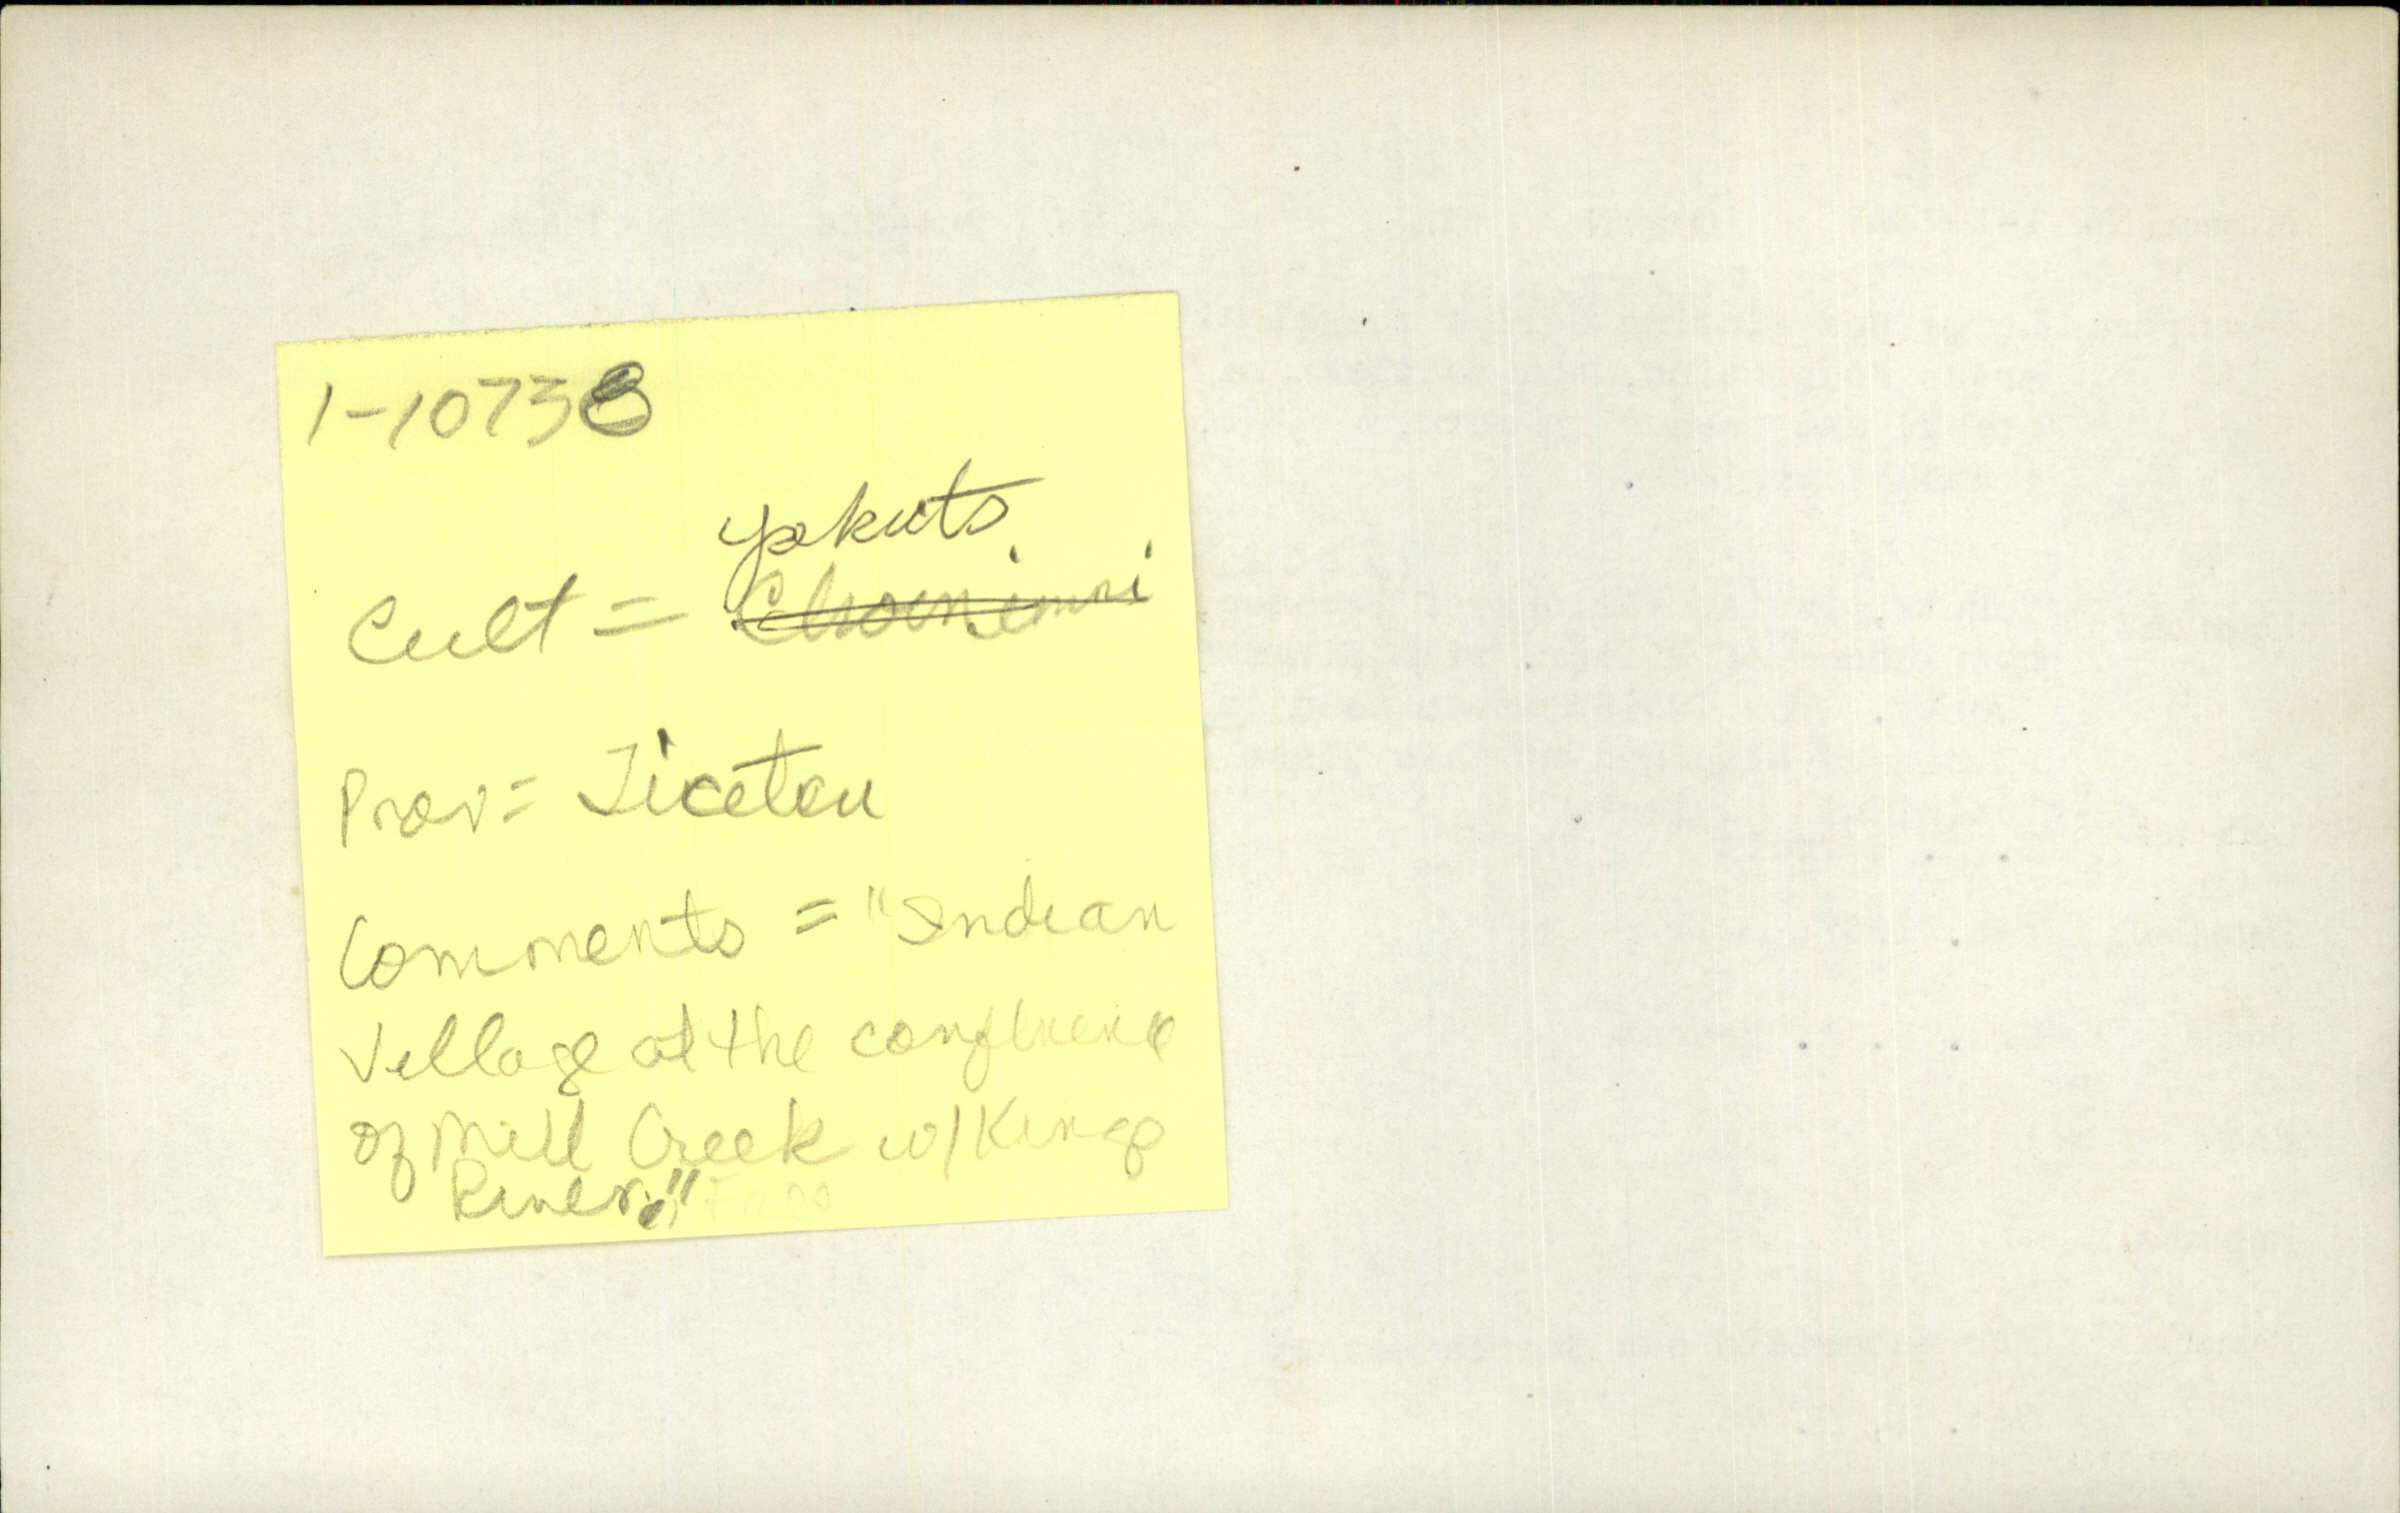 1-10738
Yokuts
Cult = Choinimni
Prov = Ticetou
Comments = "Indian
Village at the confluence
of Mill Creek w/ Kings
River."